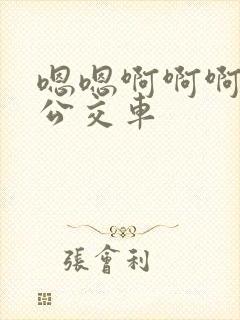 嗯嗯啊啊啊
公交车
張會利